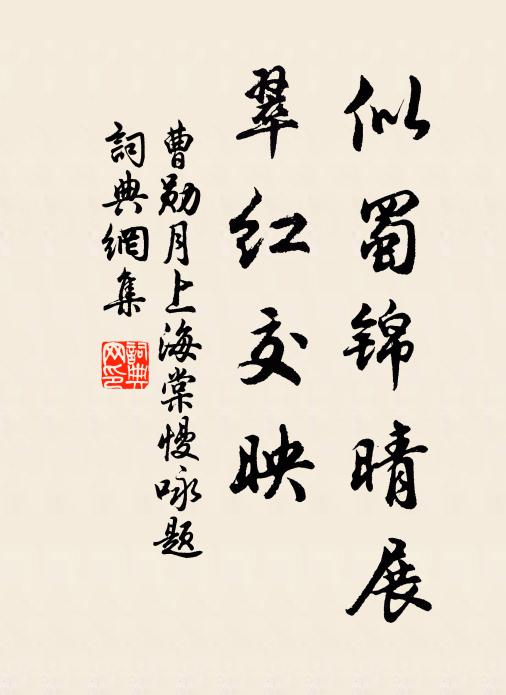 似蜀锦晴展
翠红交映
曹勋月上海棠慢咏题
詞典網集
詞典网印